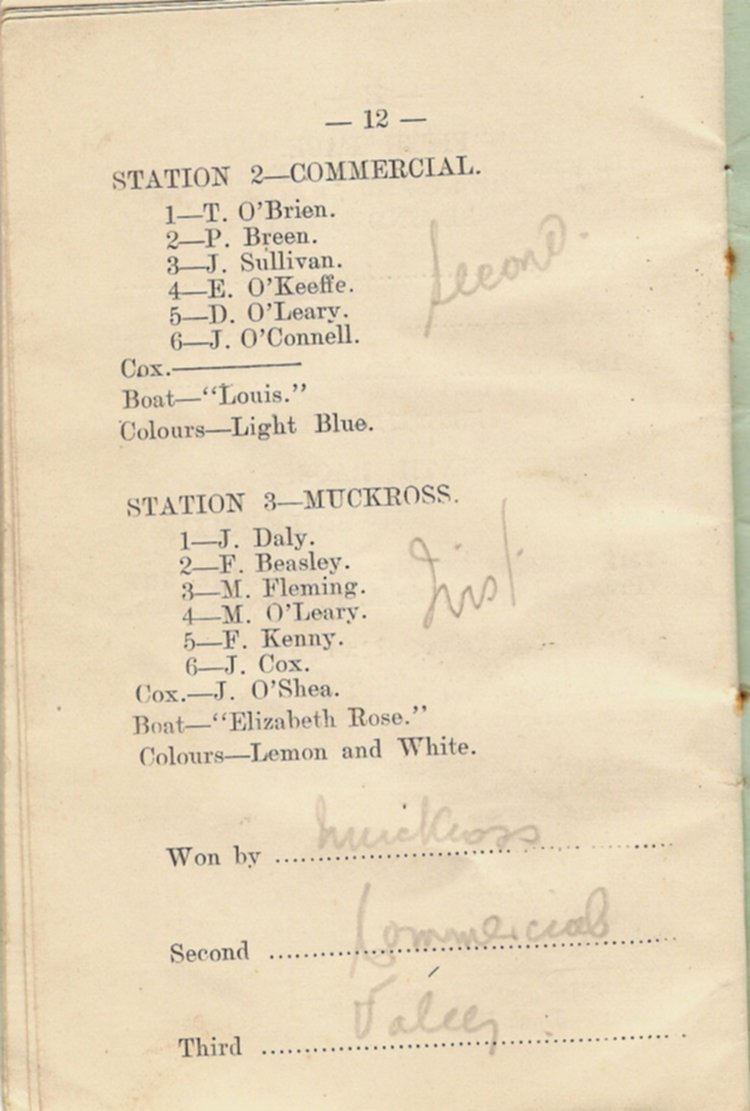 — 12 —
STATION 2—COMMERCIAL.
1—T. O'Brien.
2—P. Breen.
3—J. Sullivan.
4—E. O'Keeffe.
5—D. O'Leary.
6—J. O'Connell.
Second.
Cox.—
Boat—"Louis."
Colours—Light Blue.
STATION 3—MUCKROSS.
1—J. Daly.
2—F. Beasley.
3—M. Fleming.
4—M. O'Leary.
5—F. Kenny.
6—J. Cox.
First.
Cox.—J. O'Shea.
Boat—"Elizabeth Rose."
Colours—Lemon and White.
Won by Muckross
Second Commercial
Third